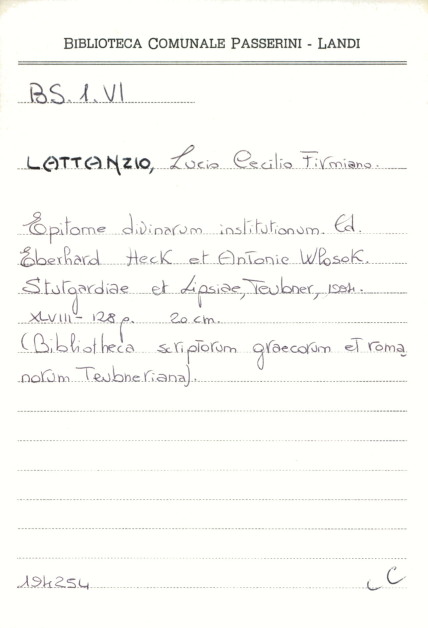 BIBLIOTECA COMUNALE PASSERINI - LANDI
BS. 1. VI
LATTANZIO, Lucio Cecilio Firmiano.
Epitome divinarum institutionum. Ed.
Eberhard Heck et Antonie Wlosok.
Stutgardiae et Lipsiae, Teubner, 1994.
XLVIII - 128 p. 20 cm.
(Bibliotheca scriptorum graecorum et roma
norum Teubneriana).
194254
C